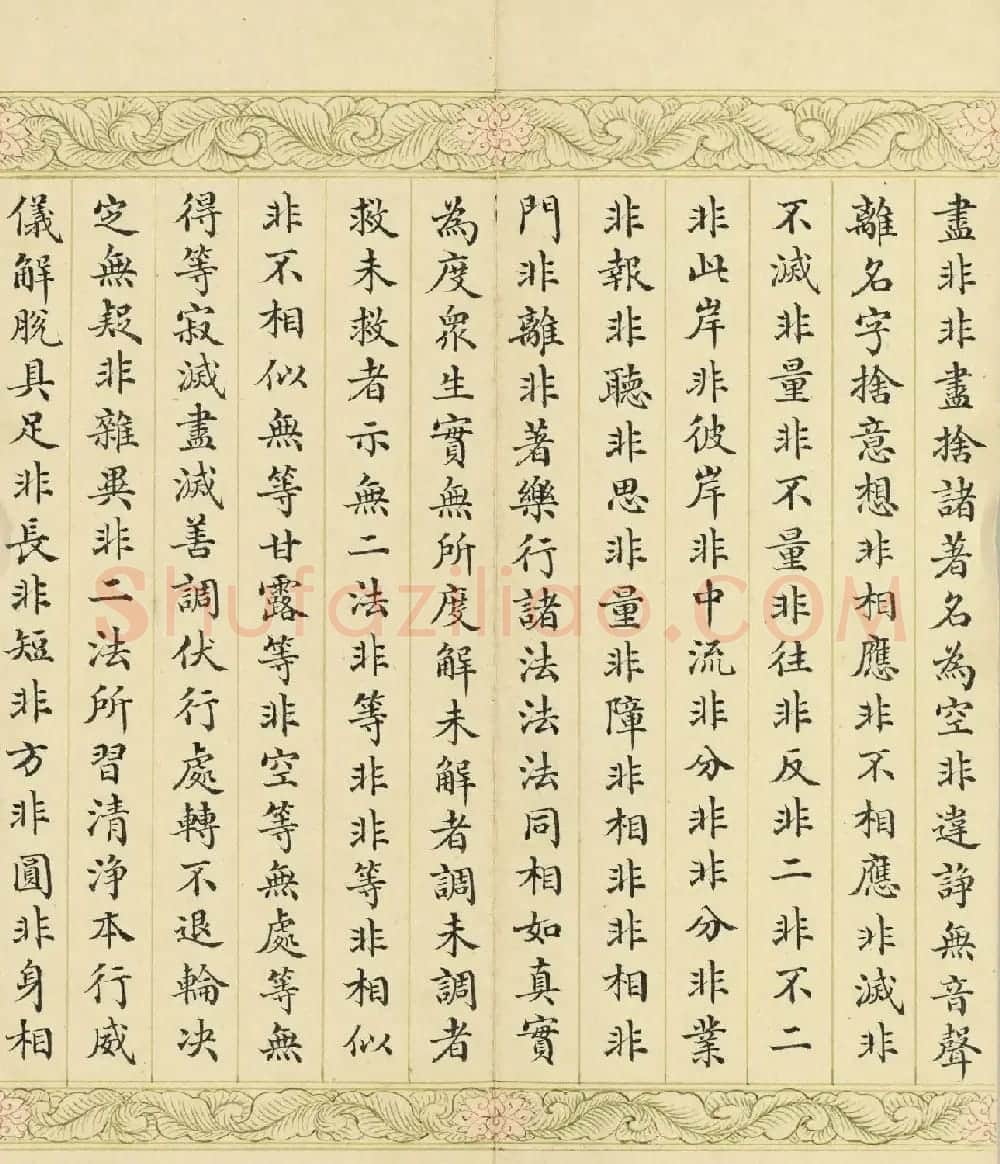 盡非非盡捨諸著名為空非違諍無音聲
離名字捨意想非相應非不相應非滅非
不滅非量非不量非往非反非二非不二
非此岸非彼岸非中流非分非非分非業
非報非聽非思非量非障非相非非相非
門非離非著樂行諸法法法同相如真實
為度眾生實無所度解未解者調未調者
救未救者示無二法非等非非等非相似
非不相似無等甘露等非空等無處等無
得等寂滅盡滅善調伏行處轉不退輪决
定無疑非雜異非二法所習清淨本行威
儀解脫具足非長非短非方非圓非身相
Shufaziliao.COM